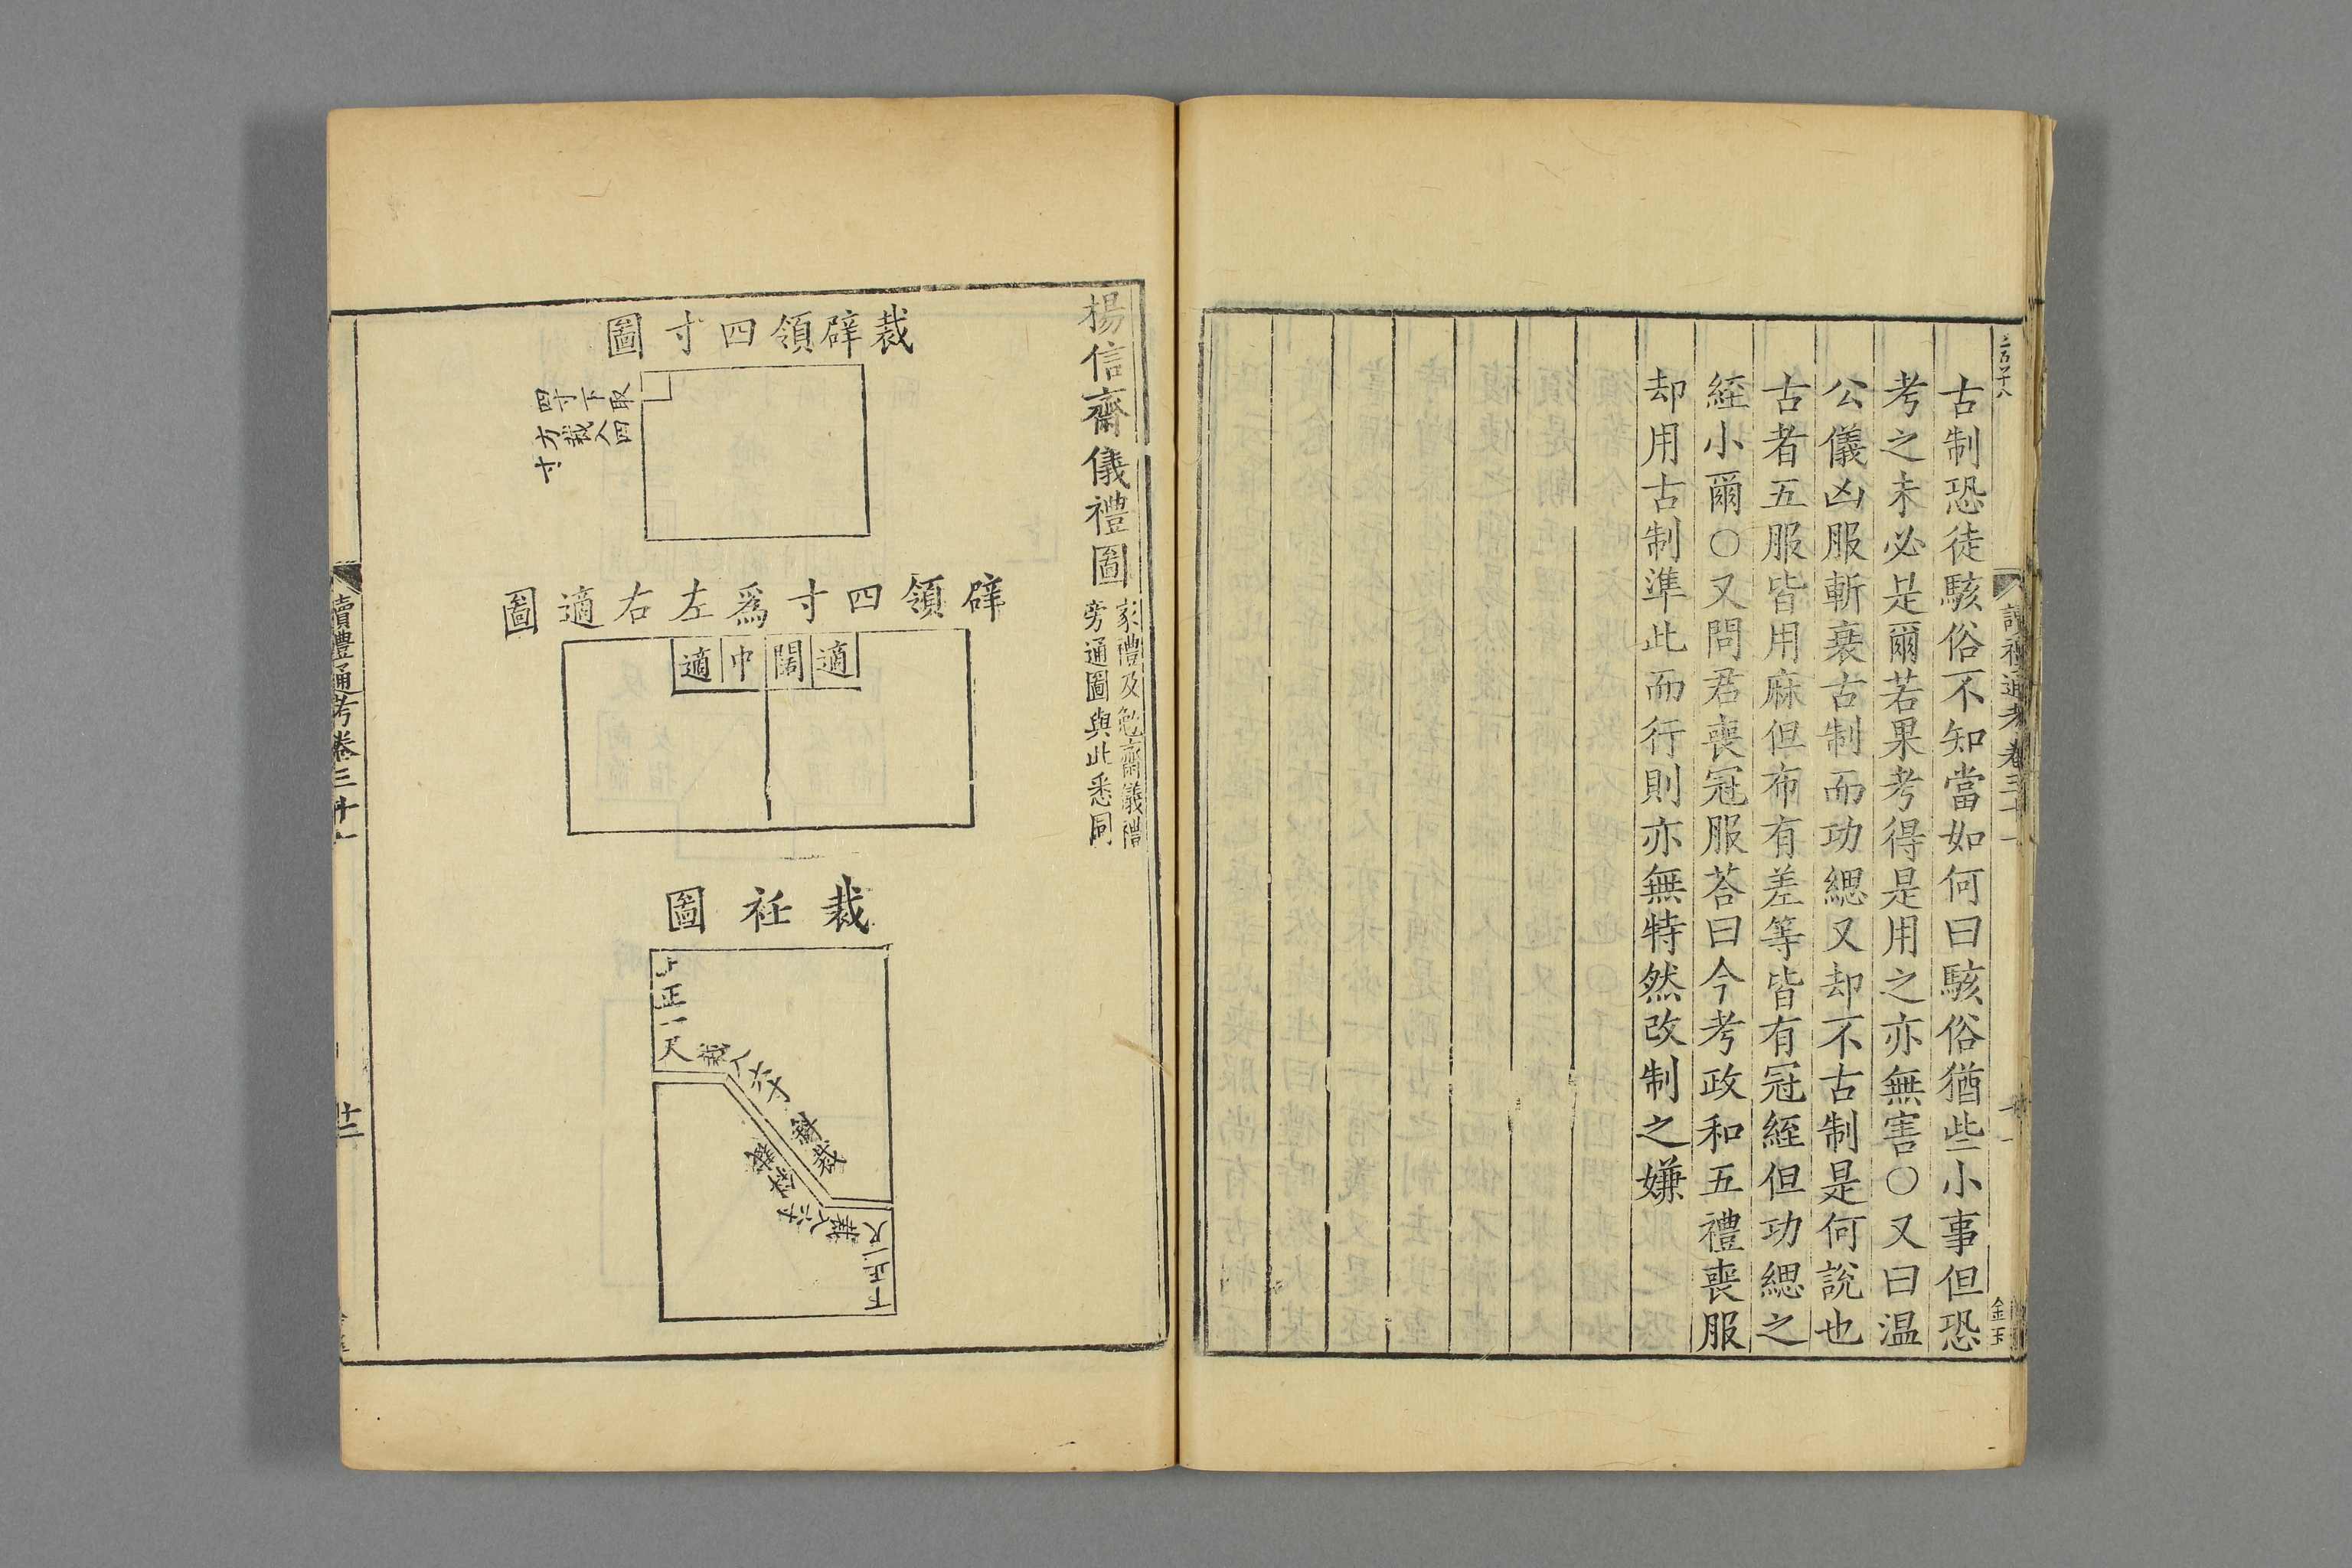 古制恐徒駭俗不知當如何曰駭俗猶些小事但恐
考之未必是爾若果考得是用之亦無害○又曰温
公儀凶服斬衰古制而功緦又却不古制是何說也
古者五服皆用麻但布有差等皆有冠絰但功緦之
絰小爾○又問君喪冠服荅曰今考政和五禮喪服
却用古制準此而行則亦無特然改制之嫌
楊信齋儀禮圖
家禮及勉齋儀禮
旁通圖與此悉同
裁辟領四寸圖
取四
下入
寸裁
四方寸
辟領四寸爲左右適圖
適
闊
中
適
裁衽圖
上正一尺
裁入六寸
斜裁
斜裁
裁入六寸
下正一尺
讀禮通考卷三十一
十二